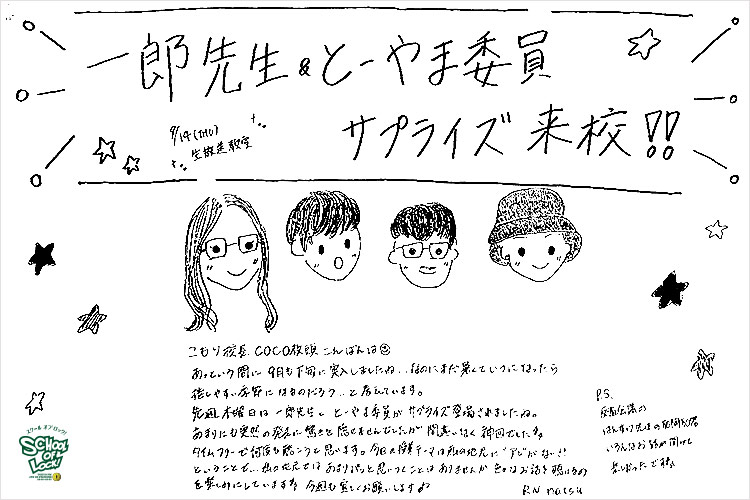 一郎先生&とーやま委員
サプライズ来校!!
9/14(THU)
生放送教室
こもり校長、COCO教頭 こんばんは
あっという間に9月も下旬に突入しましたね…なのにまだ暑くていつになったら
過しやすい季節になるのだろう…と考えています。
先週木曜日は一郎先生ととーやま委員がサプライズ登場されましたね。
あまりにも突然の発表に驚きを隠せませんでしたが間違いなく神回でしたね
タイムフリーで何度も聴こうと思います。今日の授業テーマは私の地元に"アレ"がない!!
ということで…私の地元ではあまりぱっと思いつくことはありませんが色々なお話を聴けるの
を楽しみにしています 今週も宜しくお願いします
R.N natsu
P.S.
いろんなお話が聞けて
楽しかったです
スクール オブ ロック!
SCHOOL OF LOCK!